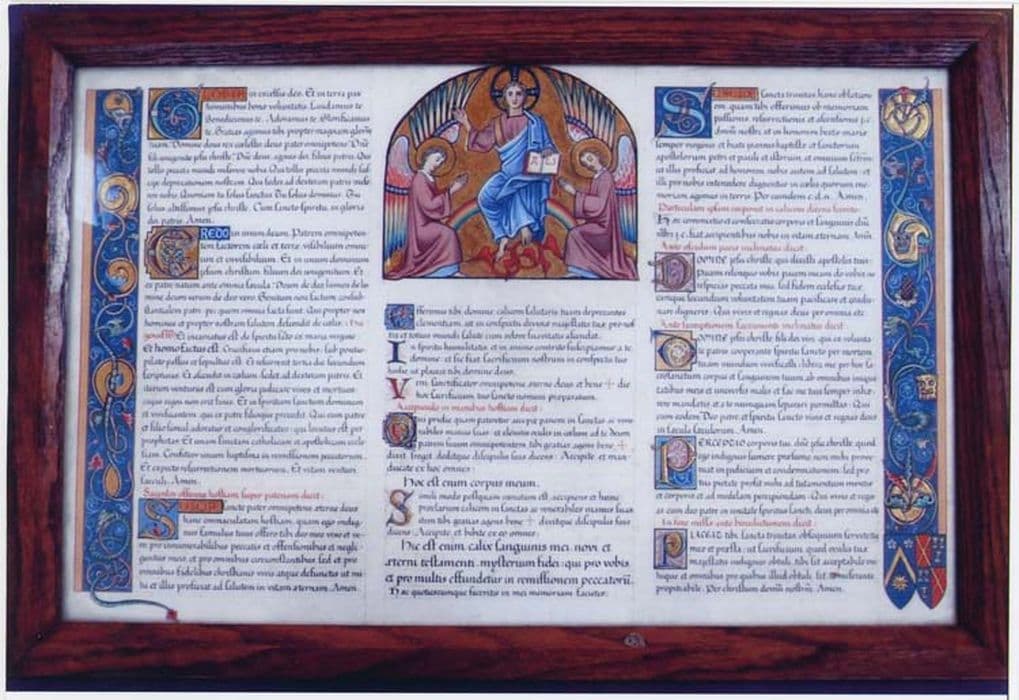 GLORIA in excelsis deo. Et in terra pax
hominibus bonę voluntatis. Laudamus te
Benedicimus te. Adoramus te. Glorificamus
te. Gratias agimus tibi propter magnam gloriam
tuam. Domine deus rex cælestis deus pater omnipotens. Dne
fili unigenite jesu christe. Dne deus agnus dei filius patris. Qui
tollis peccata mundi miserere nobis. Qui tollis peccata mundi sus
cipe deprecationem nostram. Qui sedes ad dexteram patris mise
rere nobis. Quoniam tu solus sanctus. Tu solus dominus. Tu
solus altissimus jesu christe. Cum sancto spiritu, in gloria
dei patris. Amen.
CREDO in unum deum. Patrem omnipoten
tem factorem cæli et terræ, visibilium omni
um et invisibilium. Et in unum dominum
jesum christum, filium dei unigenitum. Et
ex patre natum ante omnia sæcula. Deum de deo lumen de lu
mine deum verum de deo vero. Genitum non factum consub
stantialem patri: per quem omnia facta sunt. Qui propter nos
homines et propter nostram salutem descendit de cælis.
Et incarnatus est de spiritu sancto ex maria virgine
Et homo factus est. Crucifixus etiam pro nobis: sub pontio
pilato passus et sepultus est. Et resurrexit tertia die secundum
scripturas. Et ascendit in cælum: sedet ad dexteram patris. Et
iterum venturus est cum gloria judicare vivos et mortuos:
cujus regni non erit finis. Et in spiritum sanctum dominum
et vivificantem: qui ex patre filioque procedit. Qui cum patre
et filio simul adoratur et conglorificatur: qui locutus est per
prophetas. Et unam sanctam catholicam et apostolicam eccle
siam. Confiteor unum baptisma in remissionem peccatorum.
Et expecto resurrectionem mortuorum. Et vitam venturi
sæculi. Amen.
Sacerdos offerens hostiam super patenam dicit:
SUSCIPE sancte pater omnipotens æterne deus
hanc immaculatam hostiam, quam ego indig
nus famulus tuus offero tibi deo meo vivo et ve
ro pro innumerabilibus peccatis et offensionibus et negli
gentiis meis, et pro omnibus circumstantibus sed et pro
omnibus fidelibus christianis vivis atque defunctis ut mi
hi et illis proficiat ad salutem in vitam æternam. Amen.
Offerimus tibi domine, calicem salutaris tuam deprecantes
clementiam: ut in conspectu divinæ majestatis tuæ, pro nos
tra et totius mundi salute cum odore suavitatis ascendat.
In spiritu humilitatis et in animo contrito suscipiamur a te
domine: et sic fiat sacrificium nostrum in conspectu tuo
hodie ut placeat tibi domine deus.
Veni sanctificator omnipotens æterne deus et bene + dic
hoc sacrificium tuo sancto nomini præparatum.
Accipiendo in manibus hostiam dicit:
Qui pridie quam pateretur accepit panem in sanctas ac vene
rabiles manus suas: et elevatis oculis in cælum ad te deum
patrem suum omnipotentem, tibi gratias agens bene +
dixit fregit deditque discipulis suis dicens: Accipite et man
ducate ex hoc omnes:
Hoc est enim corpus meum.
Simili modo postquam cænatum est, accipiens et hunc
præclarum calicem in sanctas ac venerabiles manus suas
item tibi gratias agens bene + dixitque discipulis suis
dicens: Accipite et bibite ex eo omnes:
Hic est enim calix sanguinis mei, novi et
æterni testamenti, mysterium fidei: qui pro vobis
et pro multis effundetur in remissionem peccatorū.
Hæc quotiescumque feceritis in mei memoriam facietis.
SUSCIPE sancta trinitas hanc oblation
em, quam tibi offerimus ob memoriam
passionis, resurrectionis et ascensionis j.c.
domini nostri, et in honorem beatæ mariæ
semper virginis et beati joannis baptistæ et sanctorum
apostolorum petri et pauli et istorum, et omnium sctrm
ut illis proficiat ad honorem nobis autem ad salutem: et
illi pro nobis intercedere dignentur in cælis quorum me
moriam agimus in terris. Per eumdem c.d.n. Amen.
Hæc commixtio et consecratio corporis et sanguinis dni
nostri j.c. fiat accipientibus nobis in vitam æternam. Amen.
Ante osculum pacis inclinatus dicit:
DOMINE jesu christe qui dixisti apostolis tuis:
Pacem relinquo vobis pacem meam do vobis ne
respicias peccata mea, sed fidem ecclesiæ tuæ:
eamque secundum voluntatem tuam pacificare et coadu
nare digneris. Qui vivis et regnas deus per omnia etc
Ante sumptionem sacramenti inclinatus dicit
DOMINE jesu christe fili dei vivi, qui ex volunta
te patris cooperante spiritu sancto per mortem
tuam mundum vivificasti: libera me per hoc sa
crosanctum corpus et sanguinem tuum, ab omnibus iniqui
tatibus meis et universis malis et fac me tuis semper inhæ
rere mandatis, et a te numquam separari permittas: Qui
cum eodem Deo patre et spiritu sancto vivis et regnas deus
in sæcula sæculorum. Amen.
PERCEPTIO corporis tui, dne jesu christe quod
ego indignus sumere præsumo non mihi prove
niat in judicium et condemnationem: sed pro
tua pietate prosit mihi ad tutamentum mentis
et corporis et ad medelam percipiendam. Qui vivis et regn
as cum deo patre in unitate spiritus sancti, deus per omnia etc
In fine missæ ante benedictionem dicit:
PLACEAT tibi sancta trinitas obsequium servitutis
meæ et præsta: ut sacrificium, quod oculis tuæ
majestatis indignus obtuli, tibi sit acceptabile mi
hique et omnibus pro quibus illud obtuli, sit, te miserante
propitiabile. Per christum dnm nostrum. Amen.